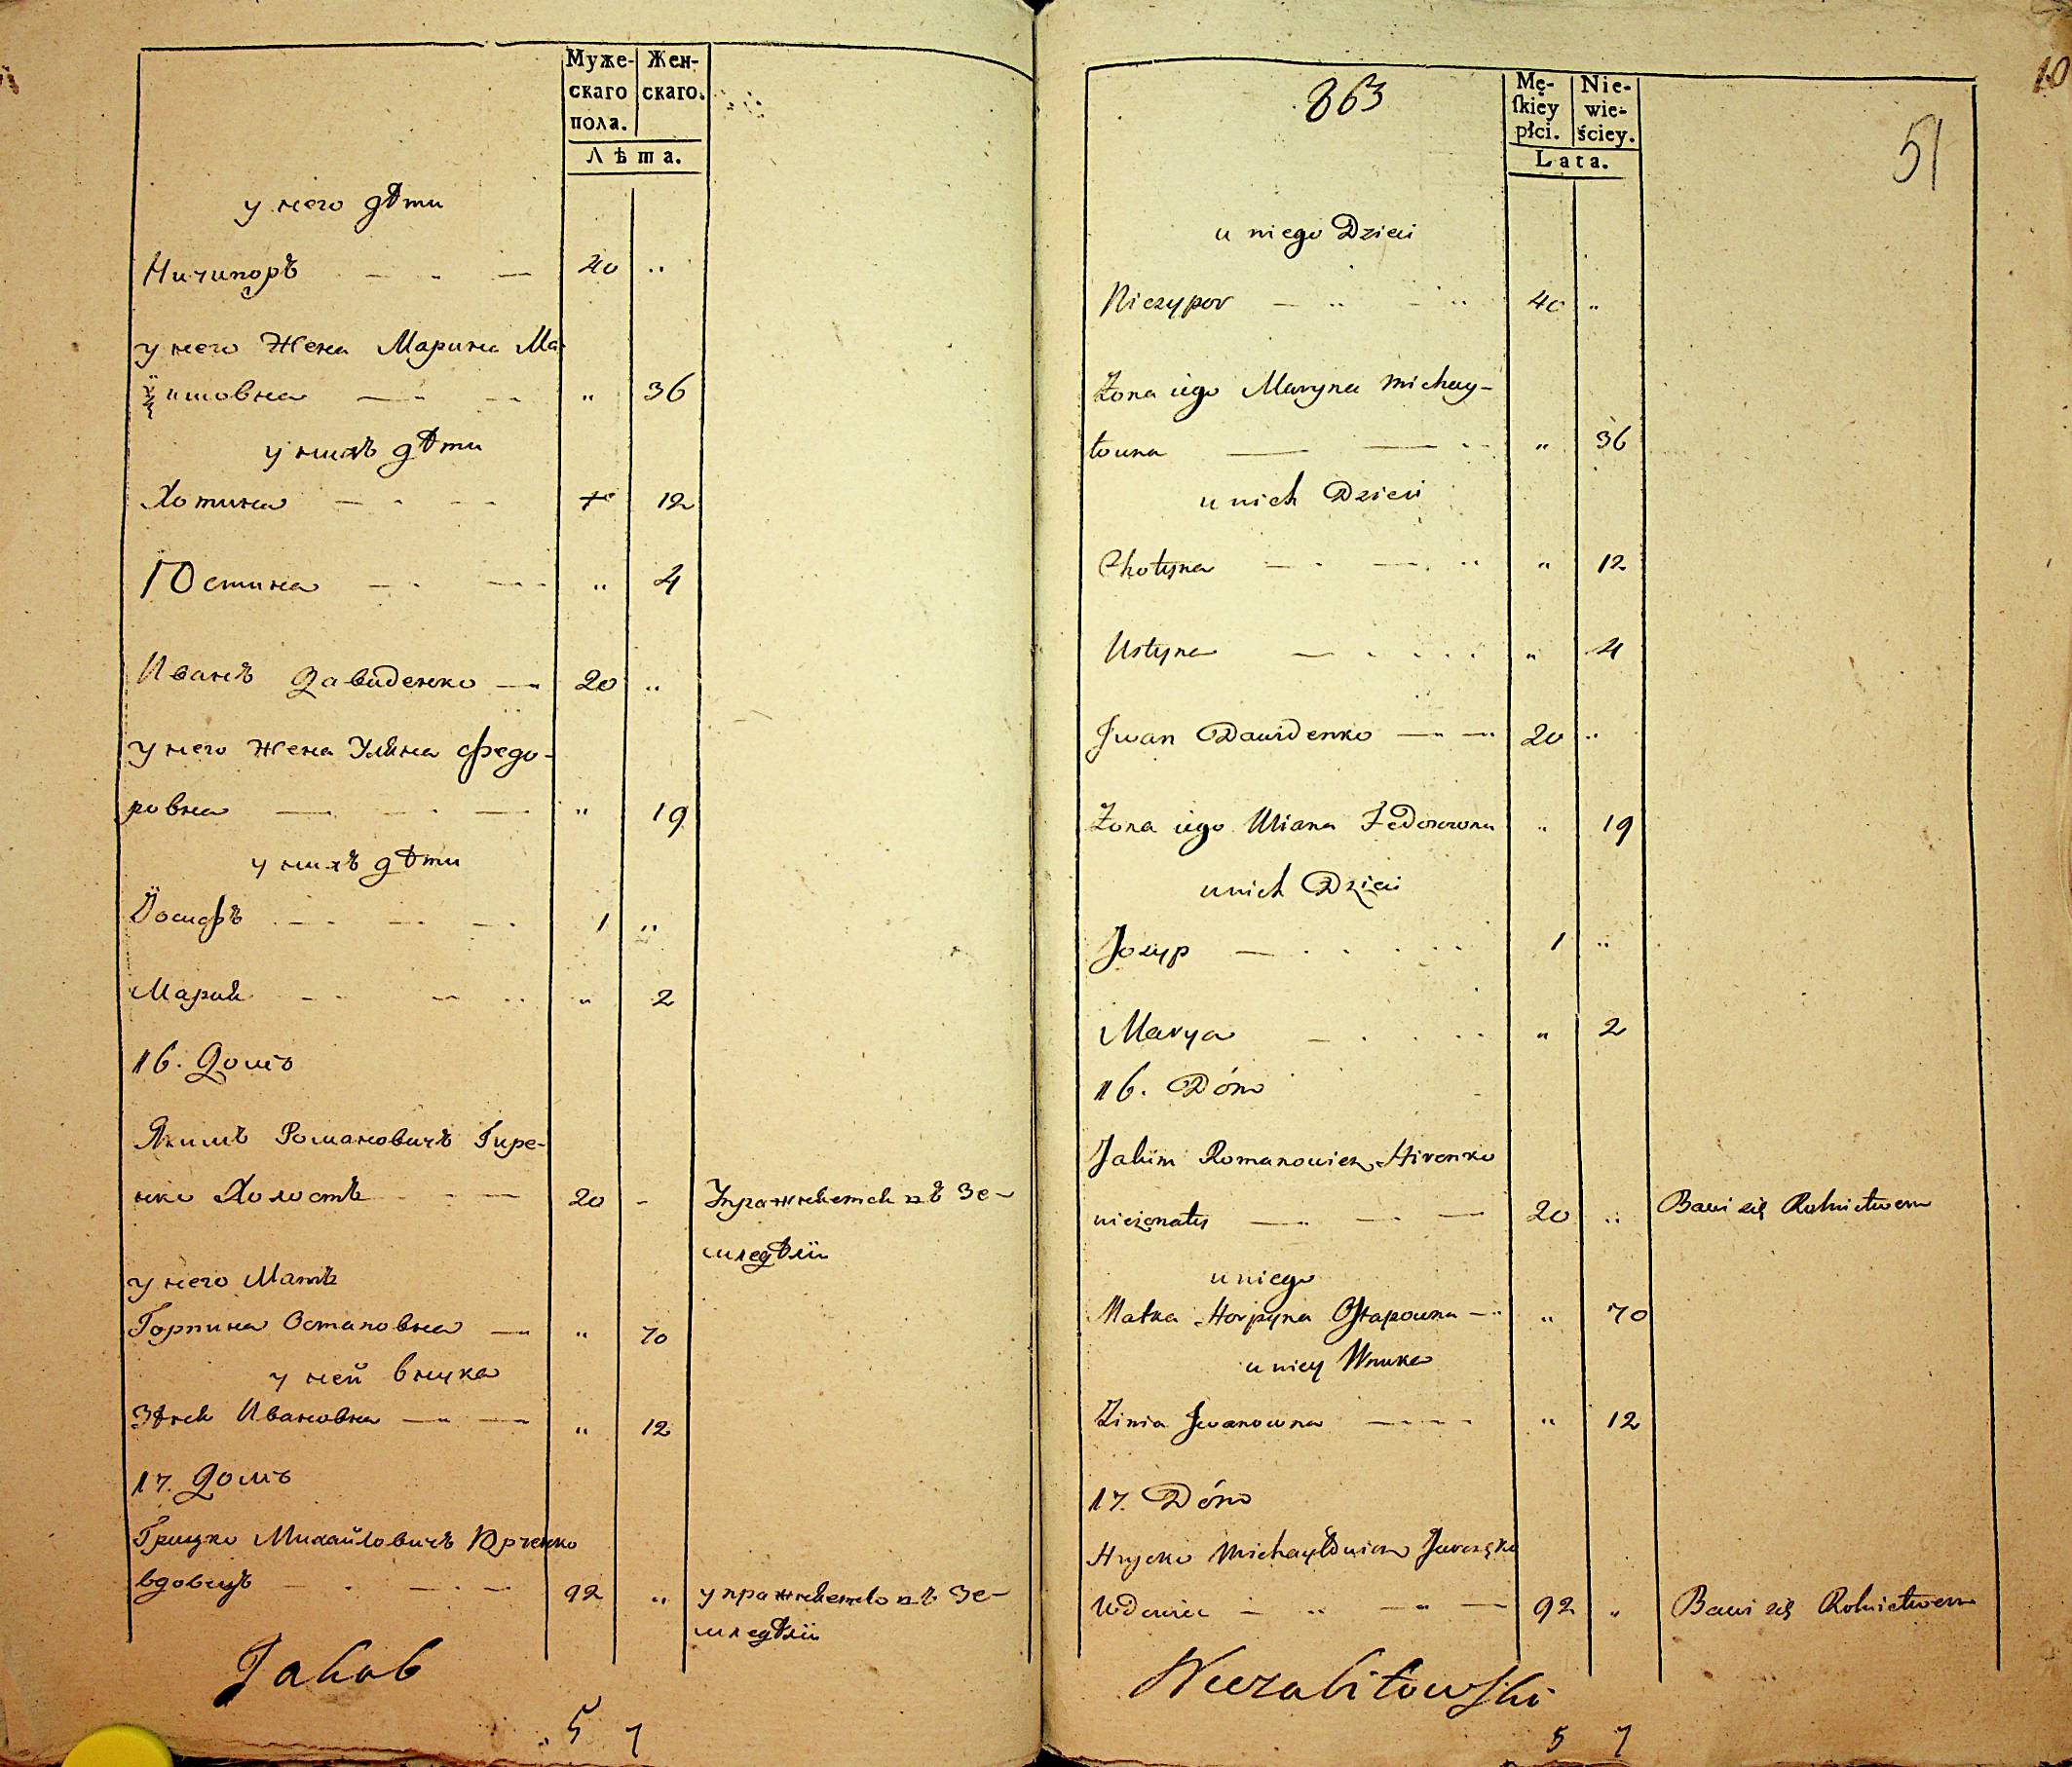 Муже- Жен-
скаго скаго.
пола.
Лѣта.
у него дѣти
Ничипоръ 40 "
у него Жена Марина Ма-
витовна " 36
у нихъ дѣти
Хотина 12
Юстина " 4
Иванъ Давиденко 20 "
у него Жена Улияна Федо-
ровна " 19
у нихъ дѣти
Iосифъ 1 "
Мария " 2
16. Домъ
Якимъ Романовичъ Гире-
нко Холостъ 20 - Упражняется въ Зе-
мледѣлiи
у него Мать
Горпина Остаповна " 70
у ней внука
Зѣня Ивановна " 12
17. Домъ
Грицко Михайловичъ Юрченко
вдовецъ 92 " упражняется въ Зе-
мледѣлiи
Jakob
5 7
10
863
51
Mę- Nie-
skiey wie-
płci. ściey.
Lata.
u niego Dzieci
Niczypor 40 "
Żona iego Maryna Michay-
łowna " 36
u nich Dzieci
Chotyna " 12
Ustyna " 4
Jwan Dawidenko 20 "
Żona iego Uliana Fedorowna " 19
u nich Dzieci
Jozyp 1 "
Marya " 2
16. Dóm
Jakim Romanowicz Hirenko
nieżonaty 20 " Bawi się Rolnictwem
u niego
Matka Horpyna Ostapowna " 70
u niey Wnuka
Zinia Jwanowna " 12
17. Dóm
Hrycko Michayłowicz Jurczęko
Wdowiec 92 " Bawi się Rolnictwem
Niezabitowski
5 7